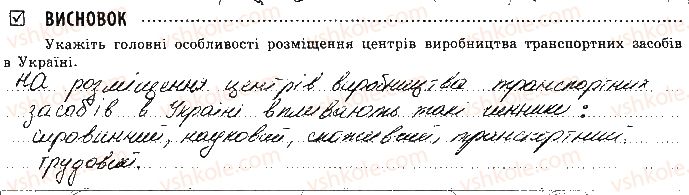 ☑ ВИСНОВОК
Укажіть головні особливості розміщення центрів виробництва транспортних засобів
в Україні.
На розміщення центрів виробництва транспортних
засобів в Україні впливають такі чинники:
сировинний, науковий, споживчий, транспортний
трудовий.